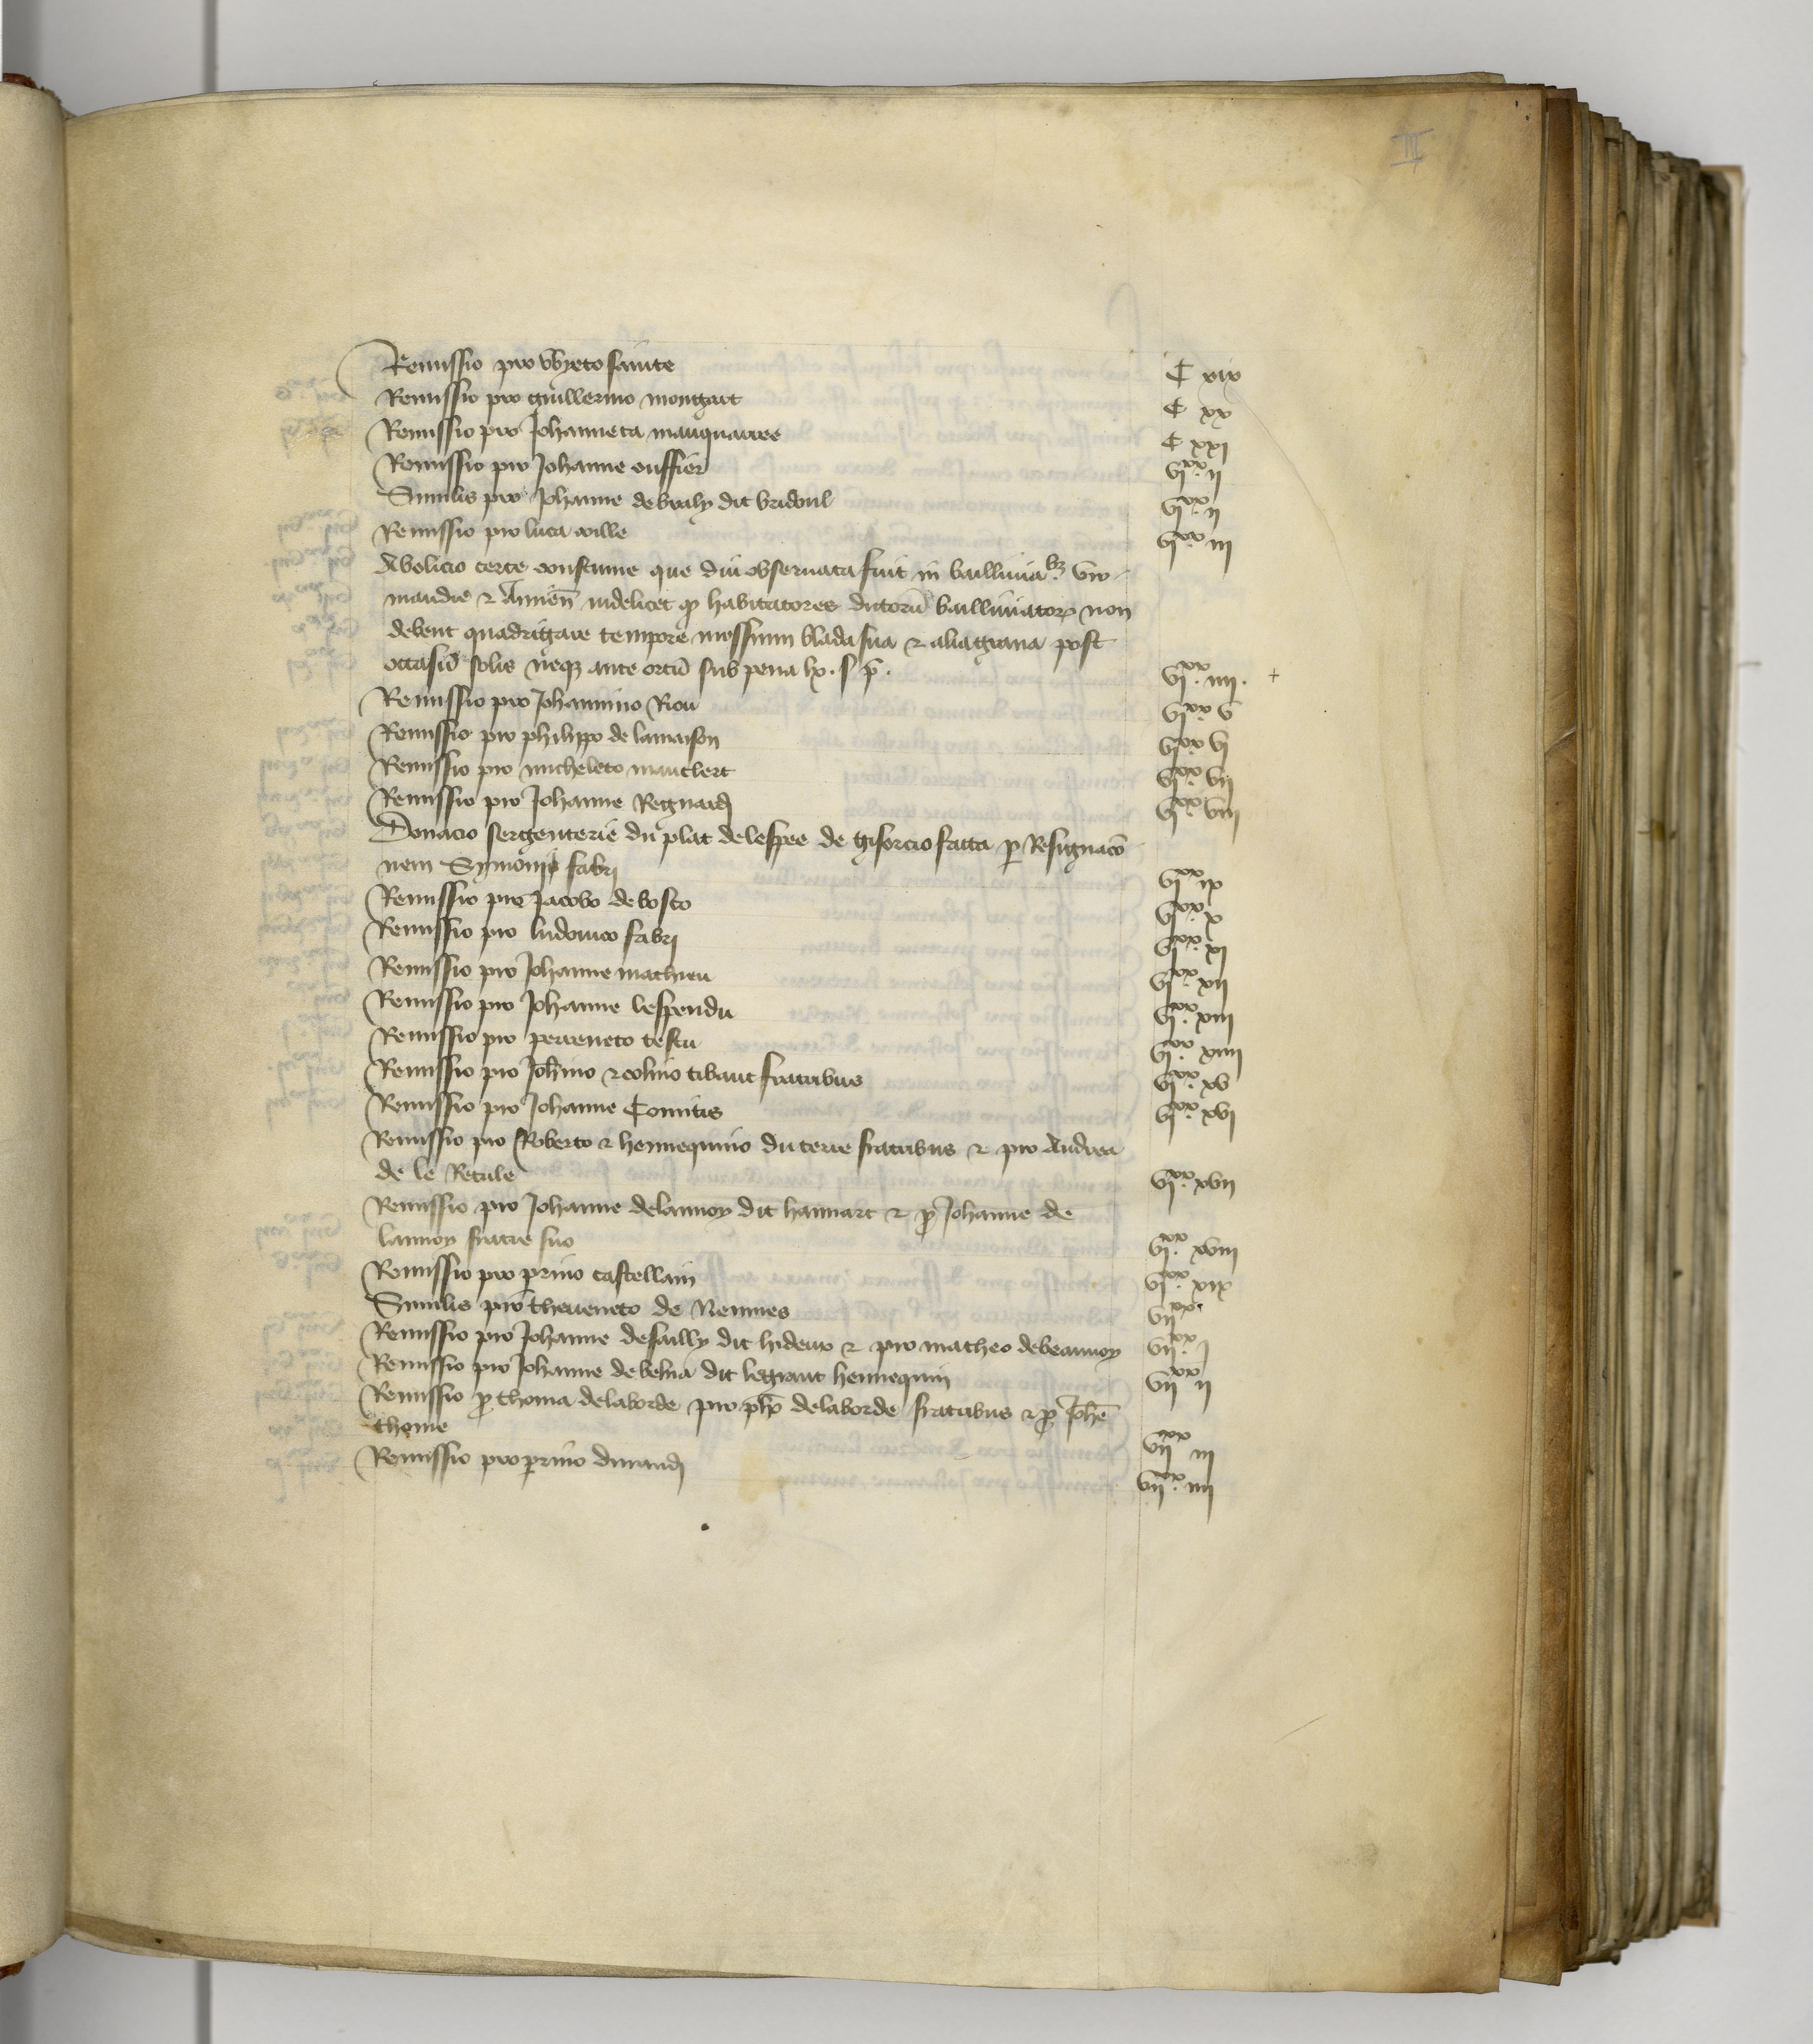 III
Remissio pro sainte C xix
Remissio pro guillermo mongart C xx
Remissio pro Johanneta mauquarree C xxi
Remissio pro Johanne ouffier vi^xx. ii
Similis pro Johanne de braly dit bridoul vi^xx. ii
Remissio pro luca wille vi^xx. iii
Abolicio certe coustume que diu observata fuit in bailliuia^bz viro
mandie & Ambien̄ videlicet qȝ habitatores dictoꝝ bailliuiatoꝝ non
debent quadrigare tempore messium blada sua & alia grana post
occasū solis neqȝ ante ortū sub pena lx. s p̄. vi^xx. iiii. +
Remissio pro Johannino Riou vi^xx. v
Remissio pro philippo de lamaison vi^xx. vi
Remissio pro micheleto mauclert vi^xx. vii
Remissio pro Johanne Regnardi vi^xx. viii
Donacio sergenterie du plat de lespee de gisorcio facta ꝑ Resignacō
nem Symonis fabri vi^xx. ix
Remissio pro Jacobo de bosco vi^xx. x
Remissio pro ludovico fabri vi^xx. xi
Remissio pro Johanne mathieu vi^xx. xii
Remissio pro Johanne lespendu vi^xx. xiii
Remissio pro perreneto testu vi^xx. xiiii
Remissio pro Joh̄nino & colino tibaut fratribus vi^xx. xv
Remissio pro Johanne Comitis vi^xx. xvi
Remissio pro Roberto & hennequino du terre fratribus & pro Andrea
de le Recule vi^xx. xvii
Remissio pro Johanne delannoy dit hannart & ꝓ Johanne de
lannoy fratre suo vi^xx. xviii
Remissio pro ꝑrino castellain vi^xx. xix
Similis pro theveneto de Rennes vii^xx.
Remissio pro Johanne de sailly dit hideux & pro matheo de beaunoy vii^xx. i
Remissio pro Johanne de belna dit legrant hennequin vii^xx. ii
Remissio ꝓ thoma delaborde pro ph̄o delaborde fratribus & ꝓ Joh̄e
thome vii^xx. iii
Remissio pro ꝑrino durandi vii^xx. iiii